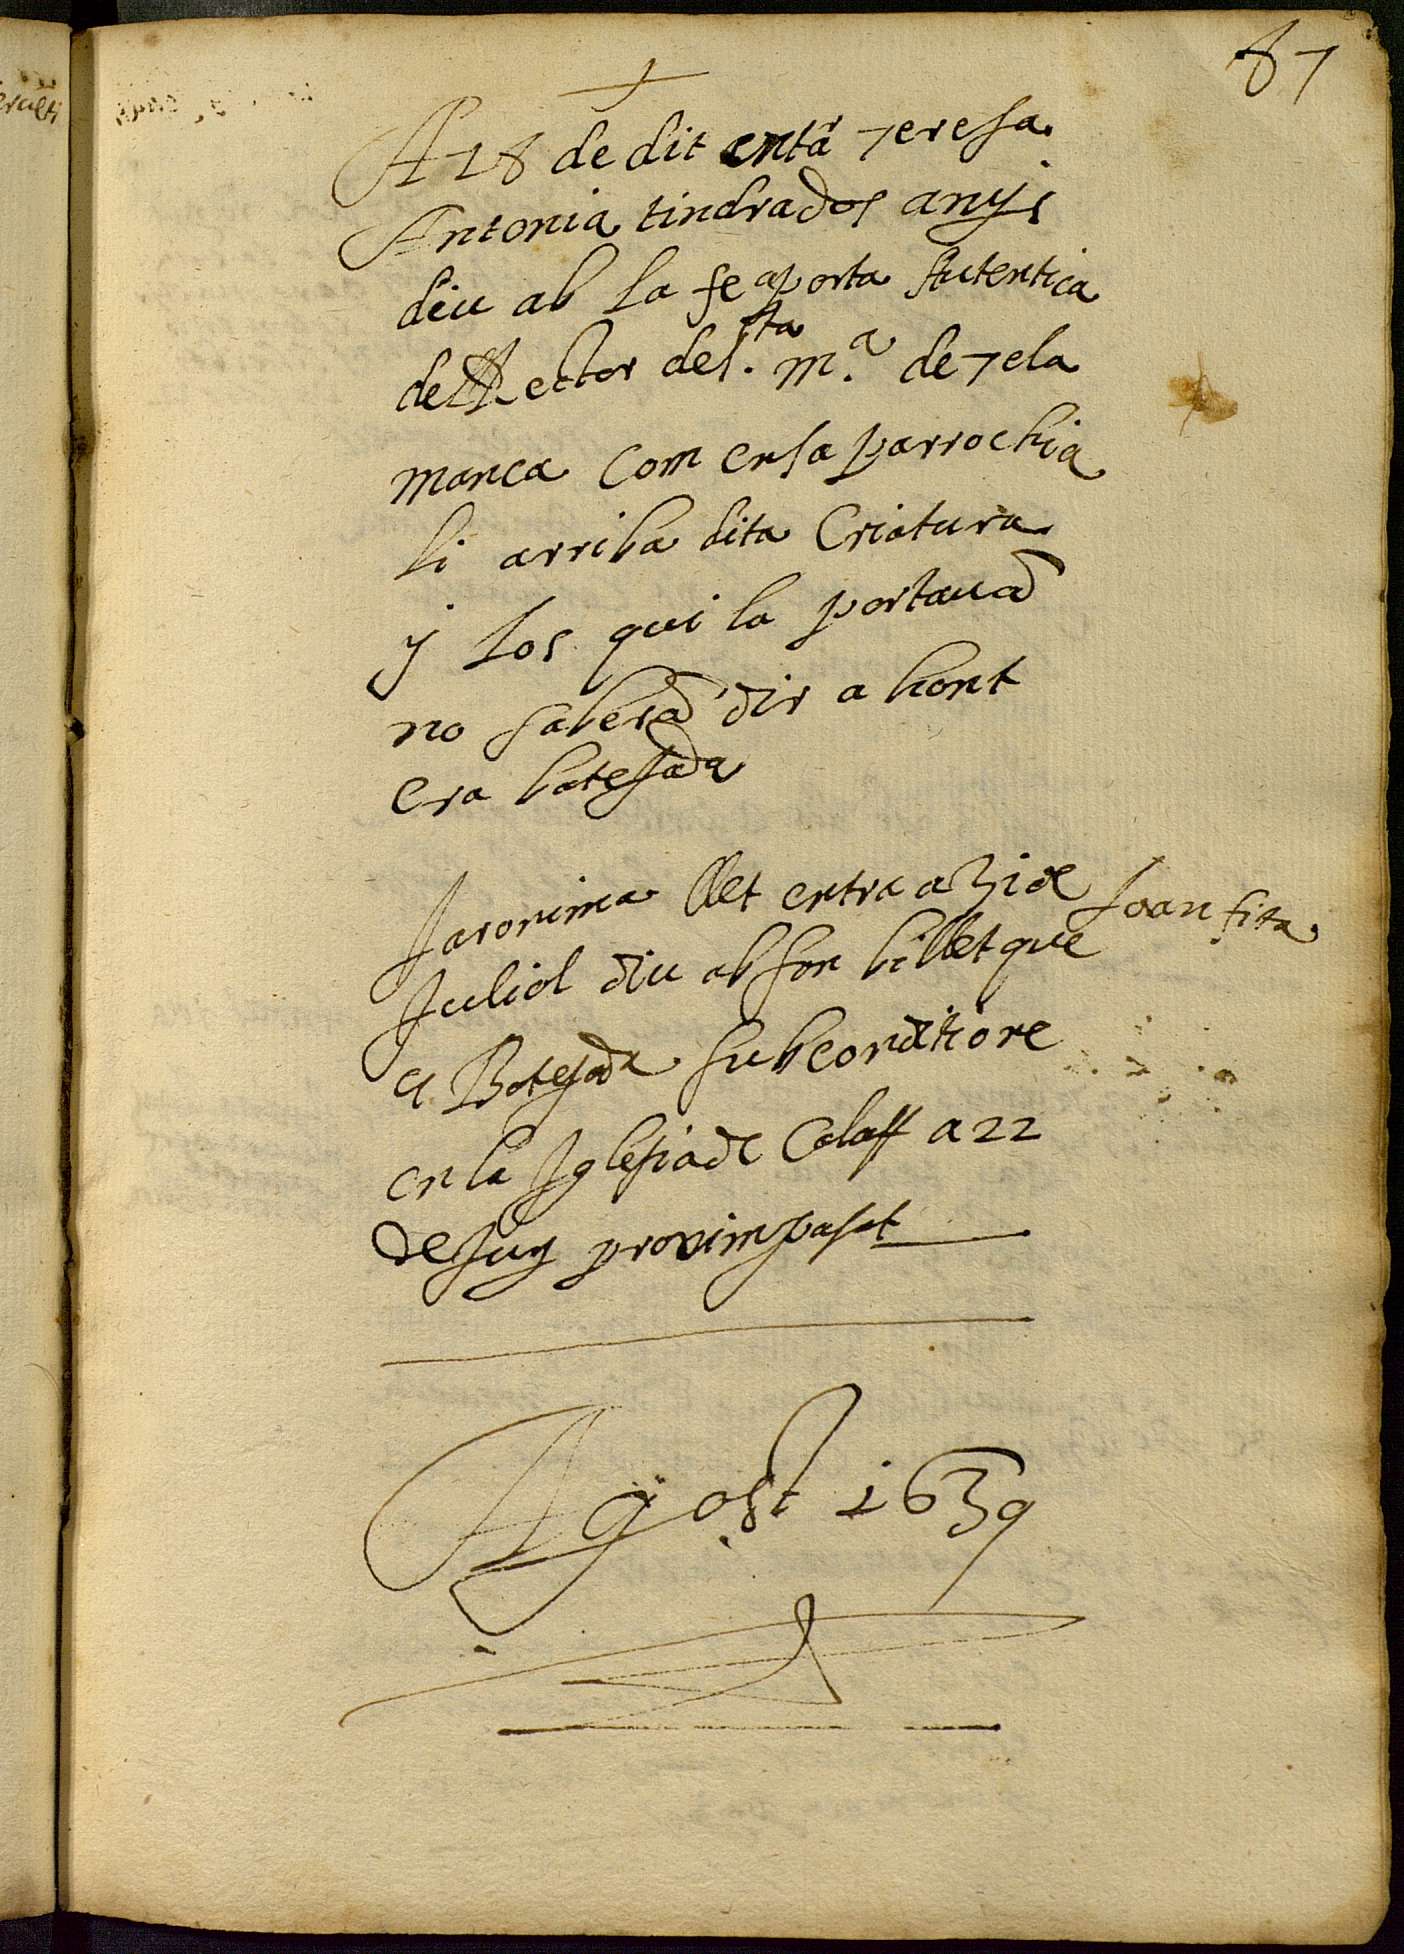 87
A 18 de dit entrà Teresa
Antonia tindra dos anys
diu ab la fe aporta Autentica
del Rector de S.ta M.a de Tela
manca com en sa parrochia
hi arriba dita Criatura
y los qui la portauā
no saberā dir a hont
era batejada
Jaronima llet entra a 31 de
Joan fita
Juliol diu ab son billet que
es Batejada subconditione
en la Iglesia de Calaff a 22
de Juy proxim pasat
Agost 1639